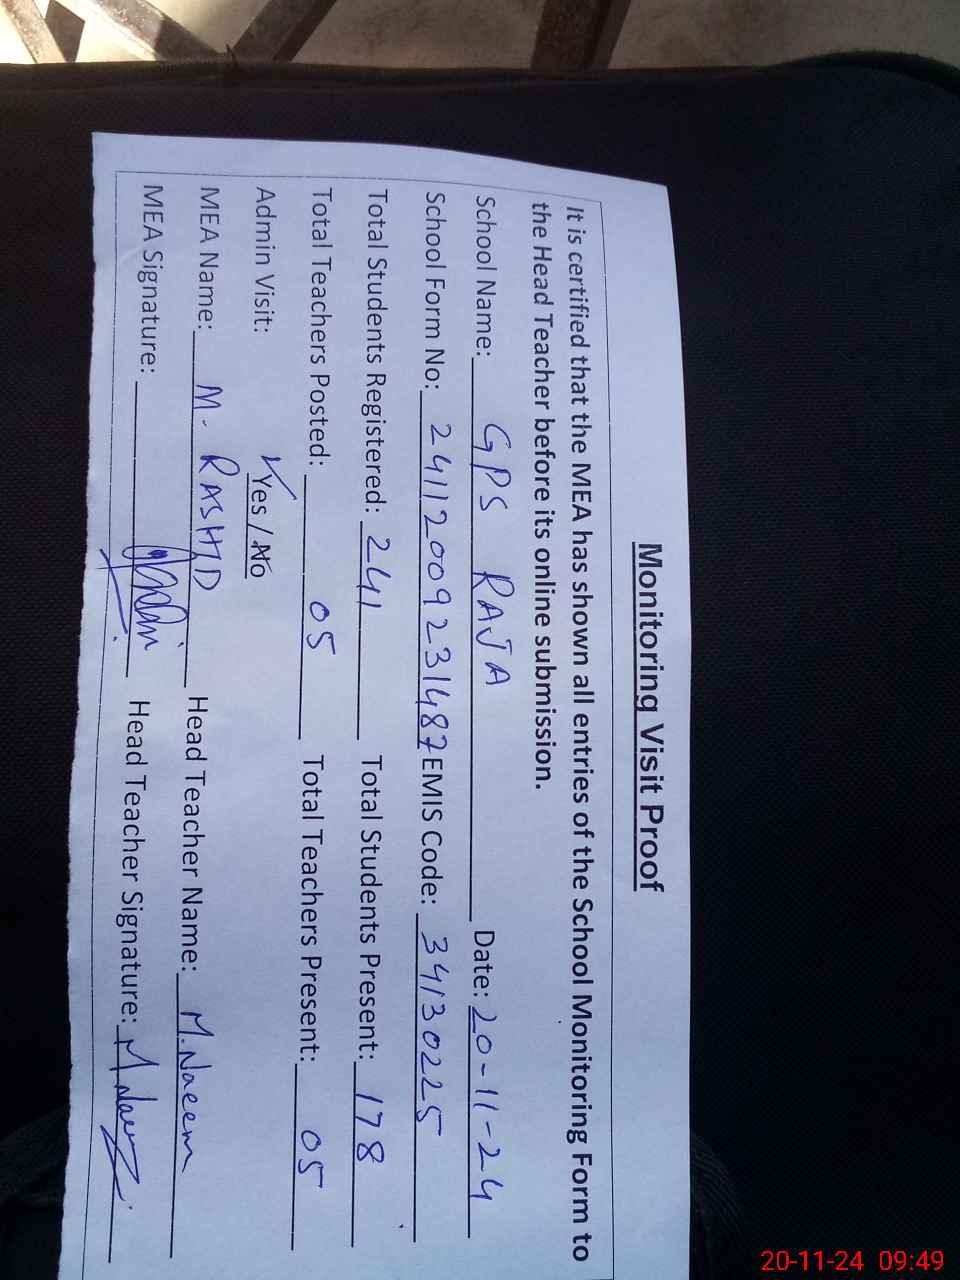 Monitoring Visit Proof
It is certified that the MEA has shown all entries of the School Monitoring Form to
the Head Teacher before its online submission.
School Name: GPS RAJA Date: 20-11-24
School Form No: 24112009231487 EMIS Code: 34130225
Total Students Registered: 241 Total Students Present: 178
Total Teachers Posted: 05 Total Teachers Present: 05
Admin Visit: Yes / No
MEA Name: M. RASHID Head Teacher Name: M. Naeem
MEA Signature: Head Teacher Signature: M Naeem
20-11-24 09:49